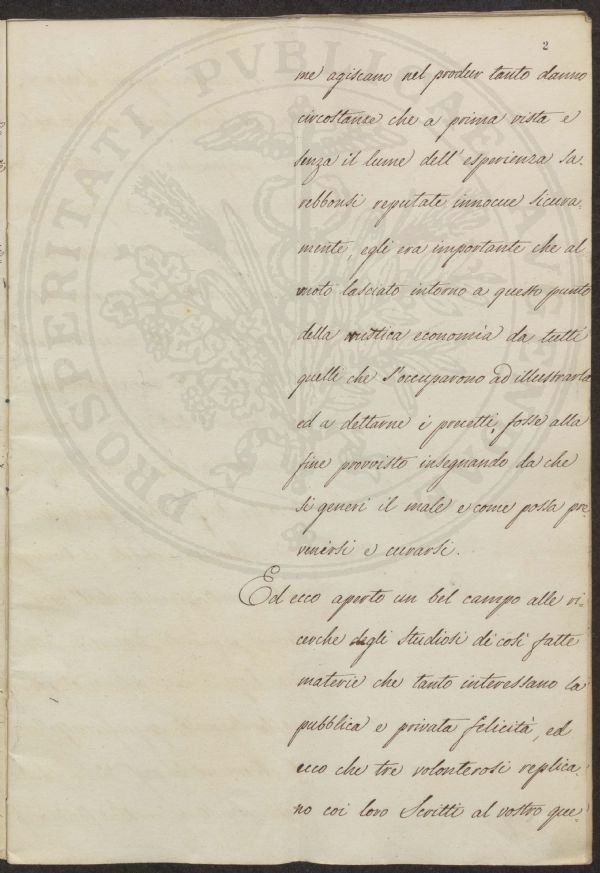 2
me agiscano nel produr tanto danno
circostanze che a prima vista e
senza il lume dell'esperienza sa-
rebbonsi reputate innocue sicura-
mente, egli era importante che al
vuoto lasciato intorno a questo punto
della rustica economia da tutti
quelli che s'occuparono ad illustrarla
ed a dettarne i precetti, fosse alla
fine provvisto insegnando da che
si generi il male e come possa pre
venirsi e curarsi.
Ed ecco aperto un bel campo alle ri-
cerche degli studiosi di così fatte
materie che tanto interessano la
pubblica e privata felicità, ed
ecco che tre volonterosi replica-
no coi loro Scritti al vostro que-
PROSPERITATI PVBLICAE